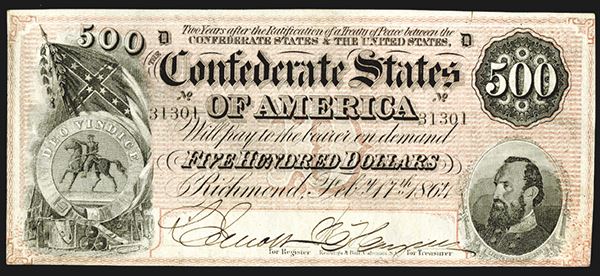 Two Years after the Ratification of a Treaty of Peace between the
CONFEDERATE STATES & THE UNITED STATES,
500 D D
THE Confederate States 500
No No
31301 OF AMERICA 31301
Will pay to the bearer on demand
DEO VINDICE
FIVE HUNDRED DOLLARS
Richmond, Feby. 17th. 1864
for Register for Treasurer